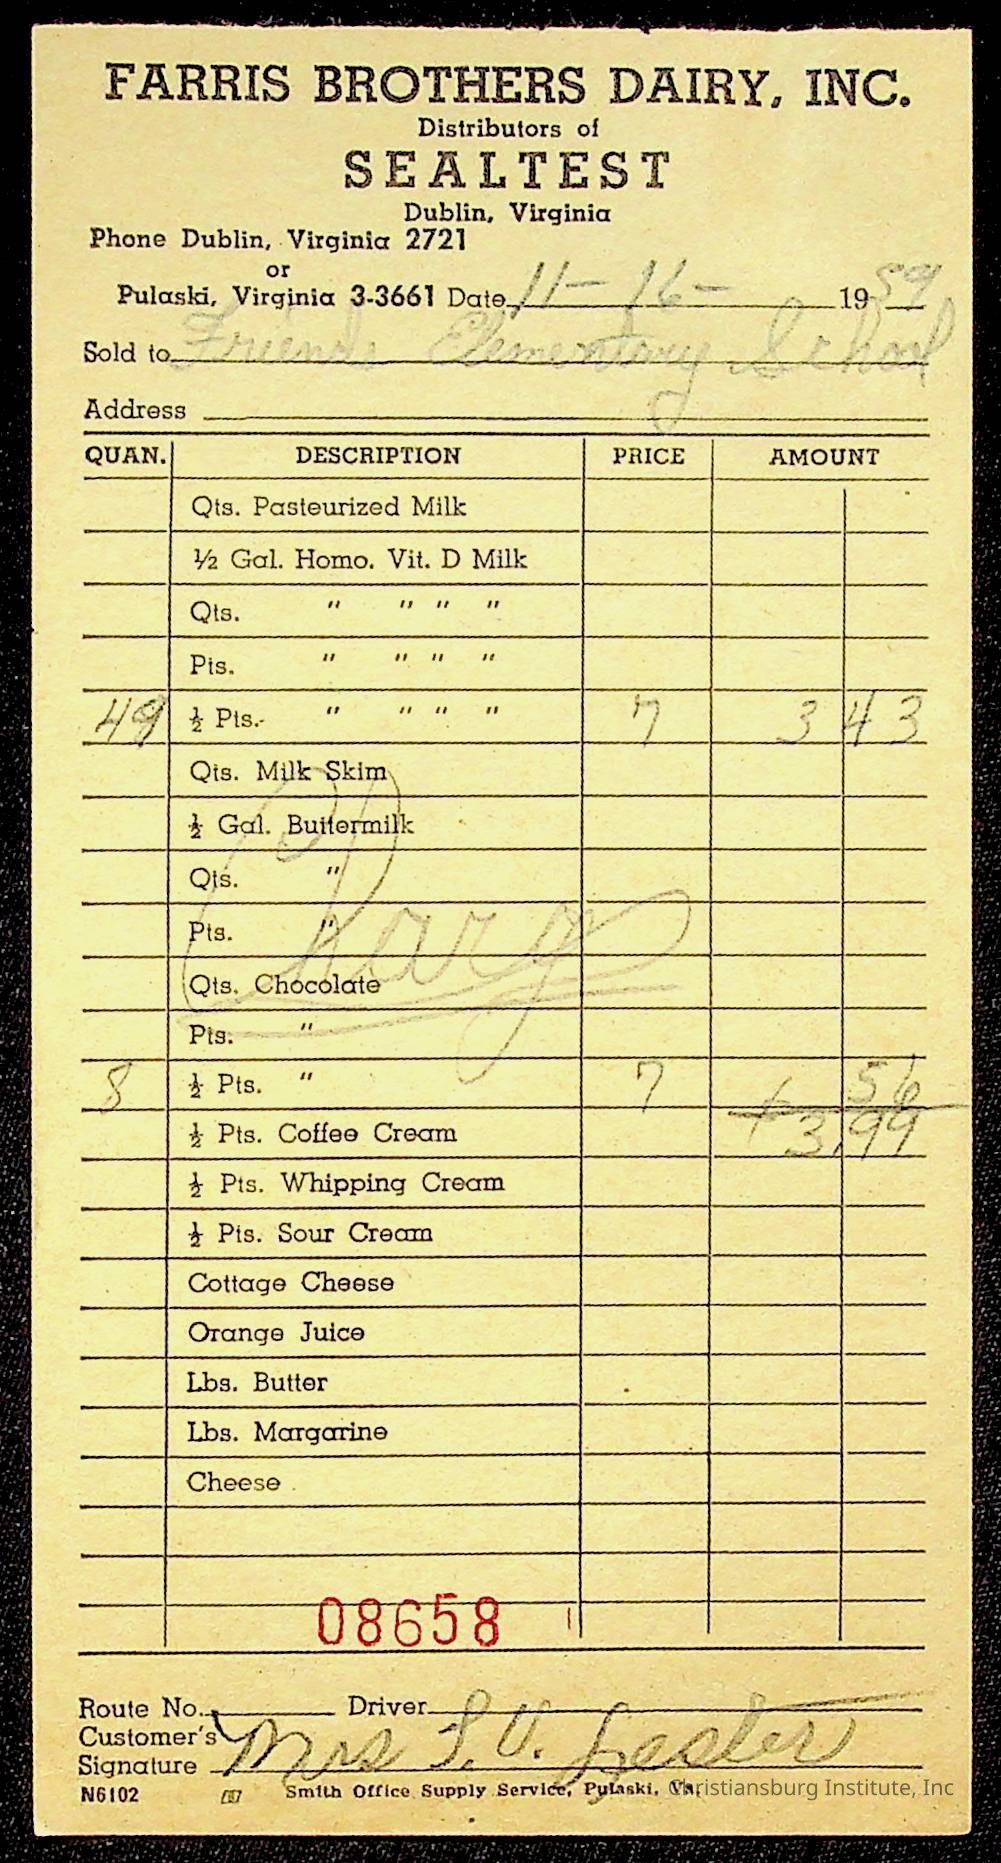 FARRIS BROTHERS DAIRY, INC.
Distributors of
SEALTEST
Dublin, Virginia
Phone Dublin, Virginia 2721
or
Pulaski, Virginia 3-3661 Date 11-16- 1959
Sold to Friends Elementary School
Address
QUAN. DESCRIPTION PRICE AMOUNT
Qts. Pasteurized Milk
½ Gal. Homo. Vit. D Milk
Qts. " " " "
Pts. " " " "
49 ½ Pts. " " " " 7 3 43
Qts. Milk Skim
½ Gal. Buttermilk
Qts. "
Pts. "
Qts. Chocolate
Pts. "
8 ½ Pts. " 7 56
½ Pts. Coffee Cream 3.99
½ Pts. Whipping Cream
½ Pts. Sour Cream
Cottage Cheese
Orange Juice
Lbs. Butter
Lbs. Margarine
Cheese
08658
Route No. Driver
Customer's
Signature Mrs L. V. Lester
N6102 Smith Office Supply Service, Pulaski, Va.
Christiansburg Institute, Inc